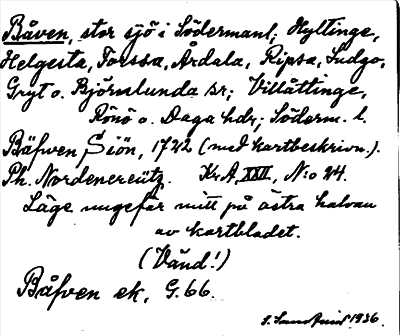 Båven, stor sjö i Södermanl; Hyltinge,
Helgesta, Forssa, Årdala, Ripsa, Ludgo,
Gryt o. Björnlunda sr; Villåttinge,
Rönö o. Daga hdr; Söderm. l.
Båfwen Siön, 1722 (med kartbeskrivn.).
Ph. Nordenereütz. Kr.A, XXII, N:o 24.
Läge ungefär mitt på östra halvan
av kartbladet.
(Vänd!)
Båfven ek, G.66.
1936.